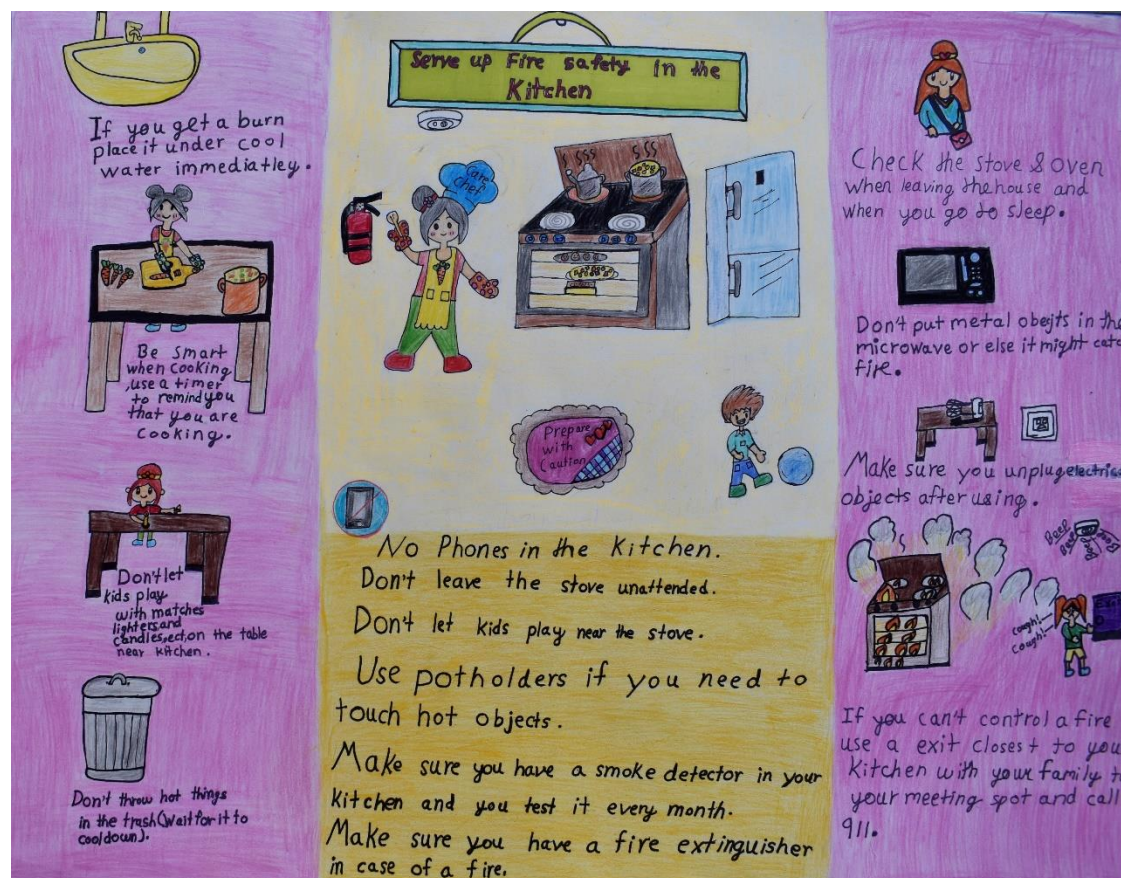 Serve up Fire safety in the
Kitchen
If you get a burn
place it under cool
water immediatley.
Be smart
when cooking
,use a timer
to remind you
that you are
cooking.
Don't let
kids play
with matches
lighters,and
candles,ect,on the table
near kitchen.
Don't throw hot things
in the trash(wait for it to
cooldown).
Care
Chef
Prepare
with
Caution
No Phones in the Kitchen.
Don't leave the stove unattended.
Don't let kids play near the stove.
Use potholders if you need to
touch hot objects.
Make sure you have a smoke detector in your
kitchen and you test it every month.
Make sure you have a fire extinguisher
in case of a fire.
Check the stove & oven
when leaving the house and
when you go to sleep.
Don't put metal obejts in the
microwave or else it might catc
fire.
Make sure you unplug electrica
objects after using.
Beep
Beep
Beep
Beep
Exit
cough!
cough!
If you can't control a fire
use a exit closest to you
Kitchen with your family t
your meeting spot and call
911.